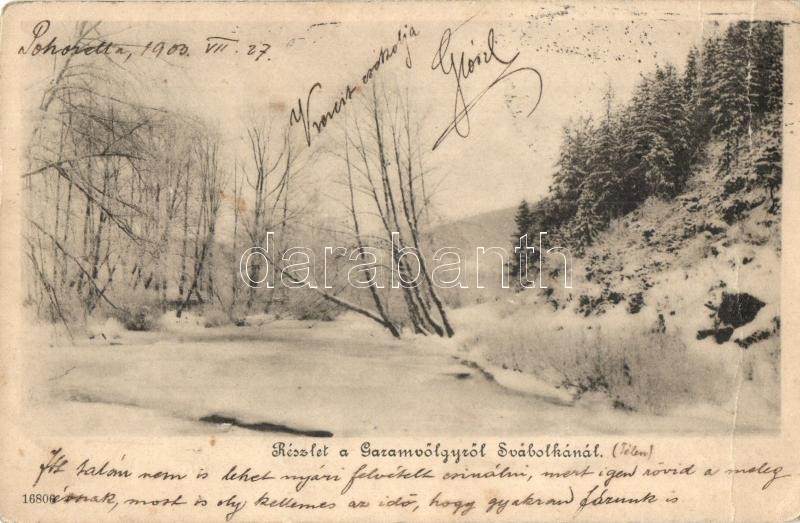 Pohorella, 1900. VII. 27
Vroni csókolja
darabanth
Részlet a Garamvölgyről Svábolkánál. (Télen)
Itt talán nem is lehet nyári felvételt csinálni, mert igen rövid a meleg
évszak, most is oly kellemes az idő, hogy gyakran fázunk is
16806